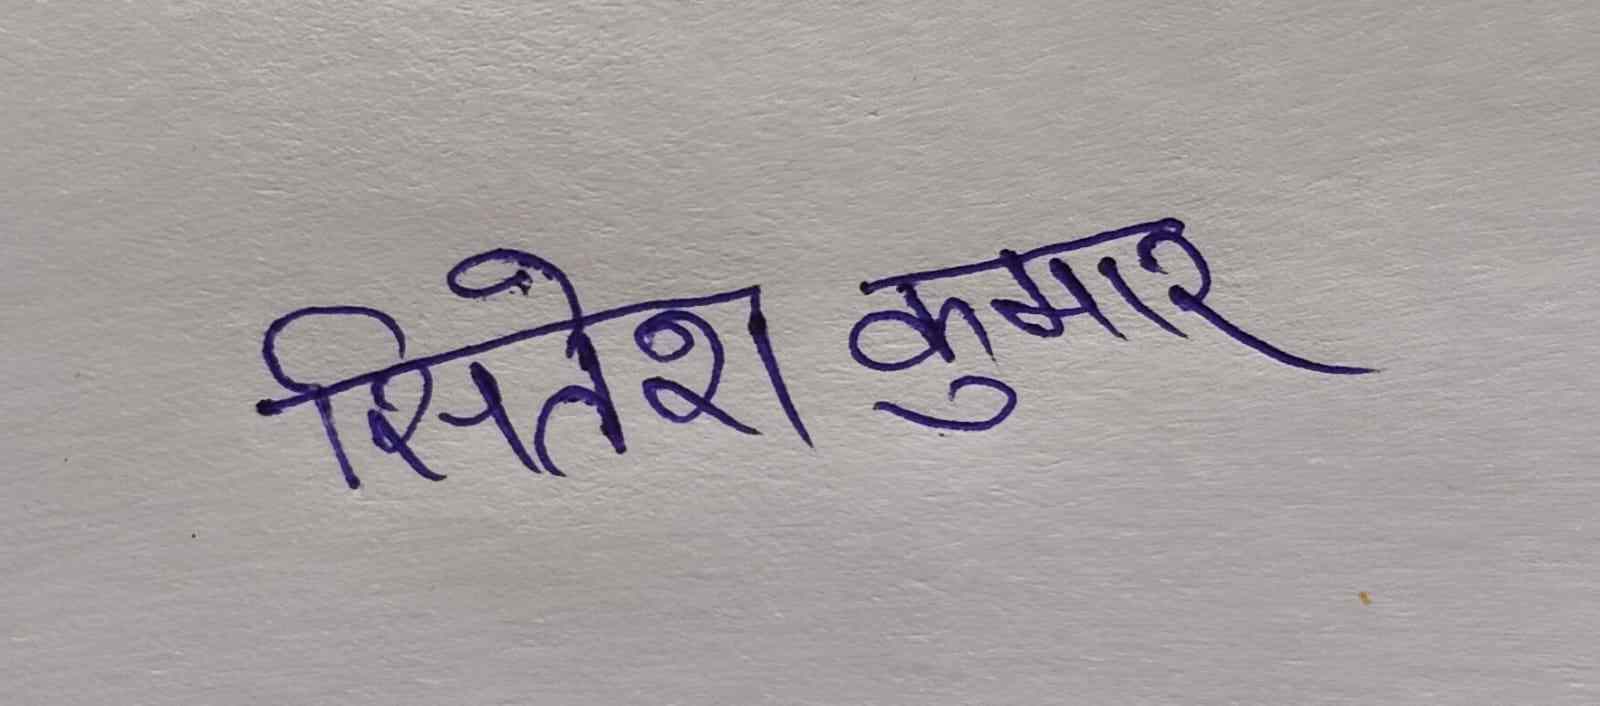 सितेश कुमार